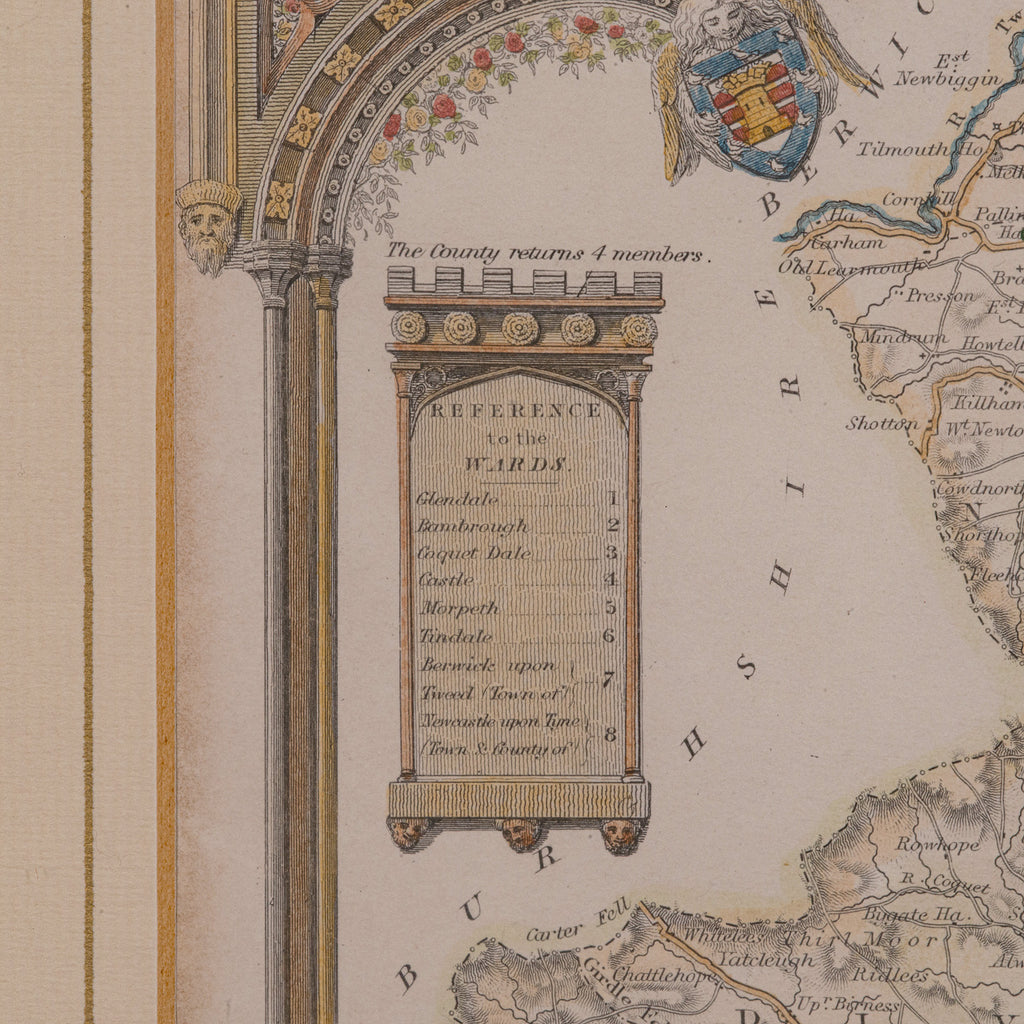 The County returns 4 members.
REFERENCE
to the
WARDS.
Glendale 1
Bambrough 2
Coquet Dale 3
Castle 4
Morpeth 5
Tindale 6
Berwick upon
Tweed (Town of) 7
Newcastle upon Tyne
(Town & County of) 8
BERWICK
BURGHSHIRE
Est
Newbiggin
R
Tilmouth Ho.
Cornhill
Ha.
Carham
Old Learmouth
Presson
Mindrum
Howtell
Killham
Shotton
Wt. Newto
Cowdnorth
N
Shortho
Fleeho
Rowhope
R. Coquet
Bygate Ha.
Carter Fell
Whitelees
Thirl Moor
Yatcleugh
Chattlehope
Ridlees
Girdle Fell
Upr. Birness